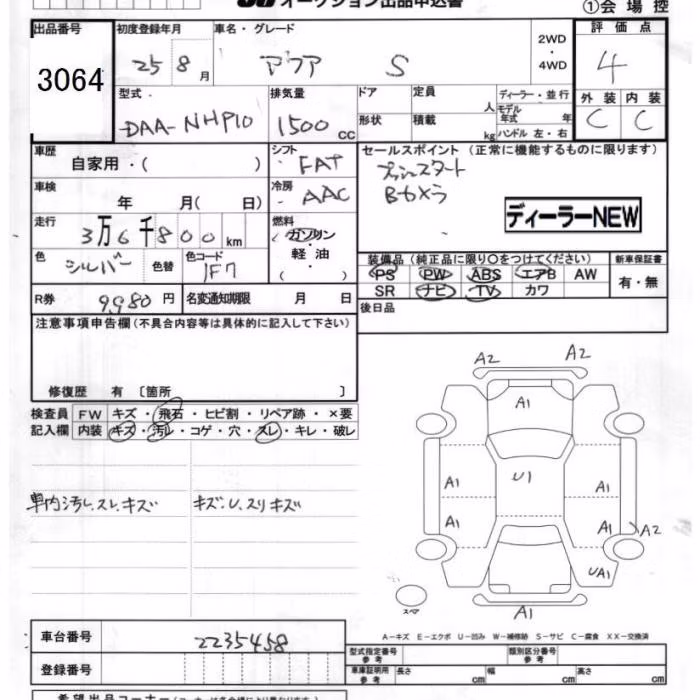 オークション出品申込書
①会場控
出品番号 3064
初度登録年月 25 8月
車名・グレード アクア S
2WD・4WD
評価点 4
外装 C 内装 C
型式 DAA-NHP10
排気量 1500cc
ドア 形状
定員 人 積載 kg
ディーラー・並行
モデル年式 年
ハンドル 左・右
車歴 自家用・( )
シフト FAT
セールスポイント (正常に機能するものに限ります)
プッシュスタート
Bカメラ
ディーラーNEW
車検 年 月( 日)
冷房 AAC
走行 3万6千800km
燃料 ガソリン・軽油 ( )
色 シルバー 色替
色コード 1F7
装備品 (純正品に限り○をつけてください)
PS PW ABS エアB AW
SR ナビ TV カワ
新車保証書 有・無
R券 9,980円
名変通知期限 月 日
後日品
注意事項申告欄(不具合内容等は具体的に記入して下さい)
修復歴 有 〔箇所 〕
検査員記入欄
FW キズ・飛石・ヒビ割・リペア跡・×要
内装 キズ・汚レ・コゲ・穴・スレ・キレ・破レ
車内汚レ、スレ、キズ
キズ・U、スリキズ
A2 A2
A1
A1 U1 A1
A1 A1 A2
UA1
スペア
A1
A-キズ E-エクボ U-凹み W-補修跡 S-サビ C-腐食 XX-交換済
車台番号 2235458
登録番号
型式指定番号 参考
類別区分番号 参考
車庫証明用 参考 長さ cm 幅 cm 高さ cm
希望出品コーナー